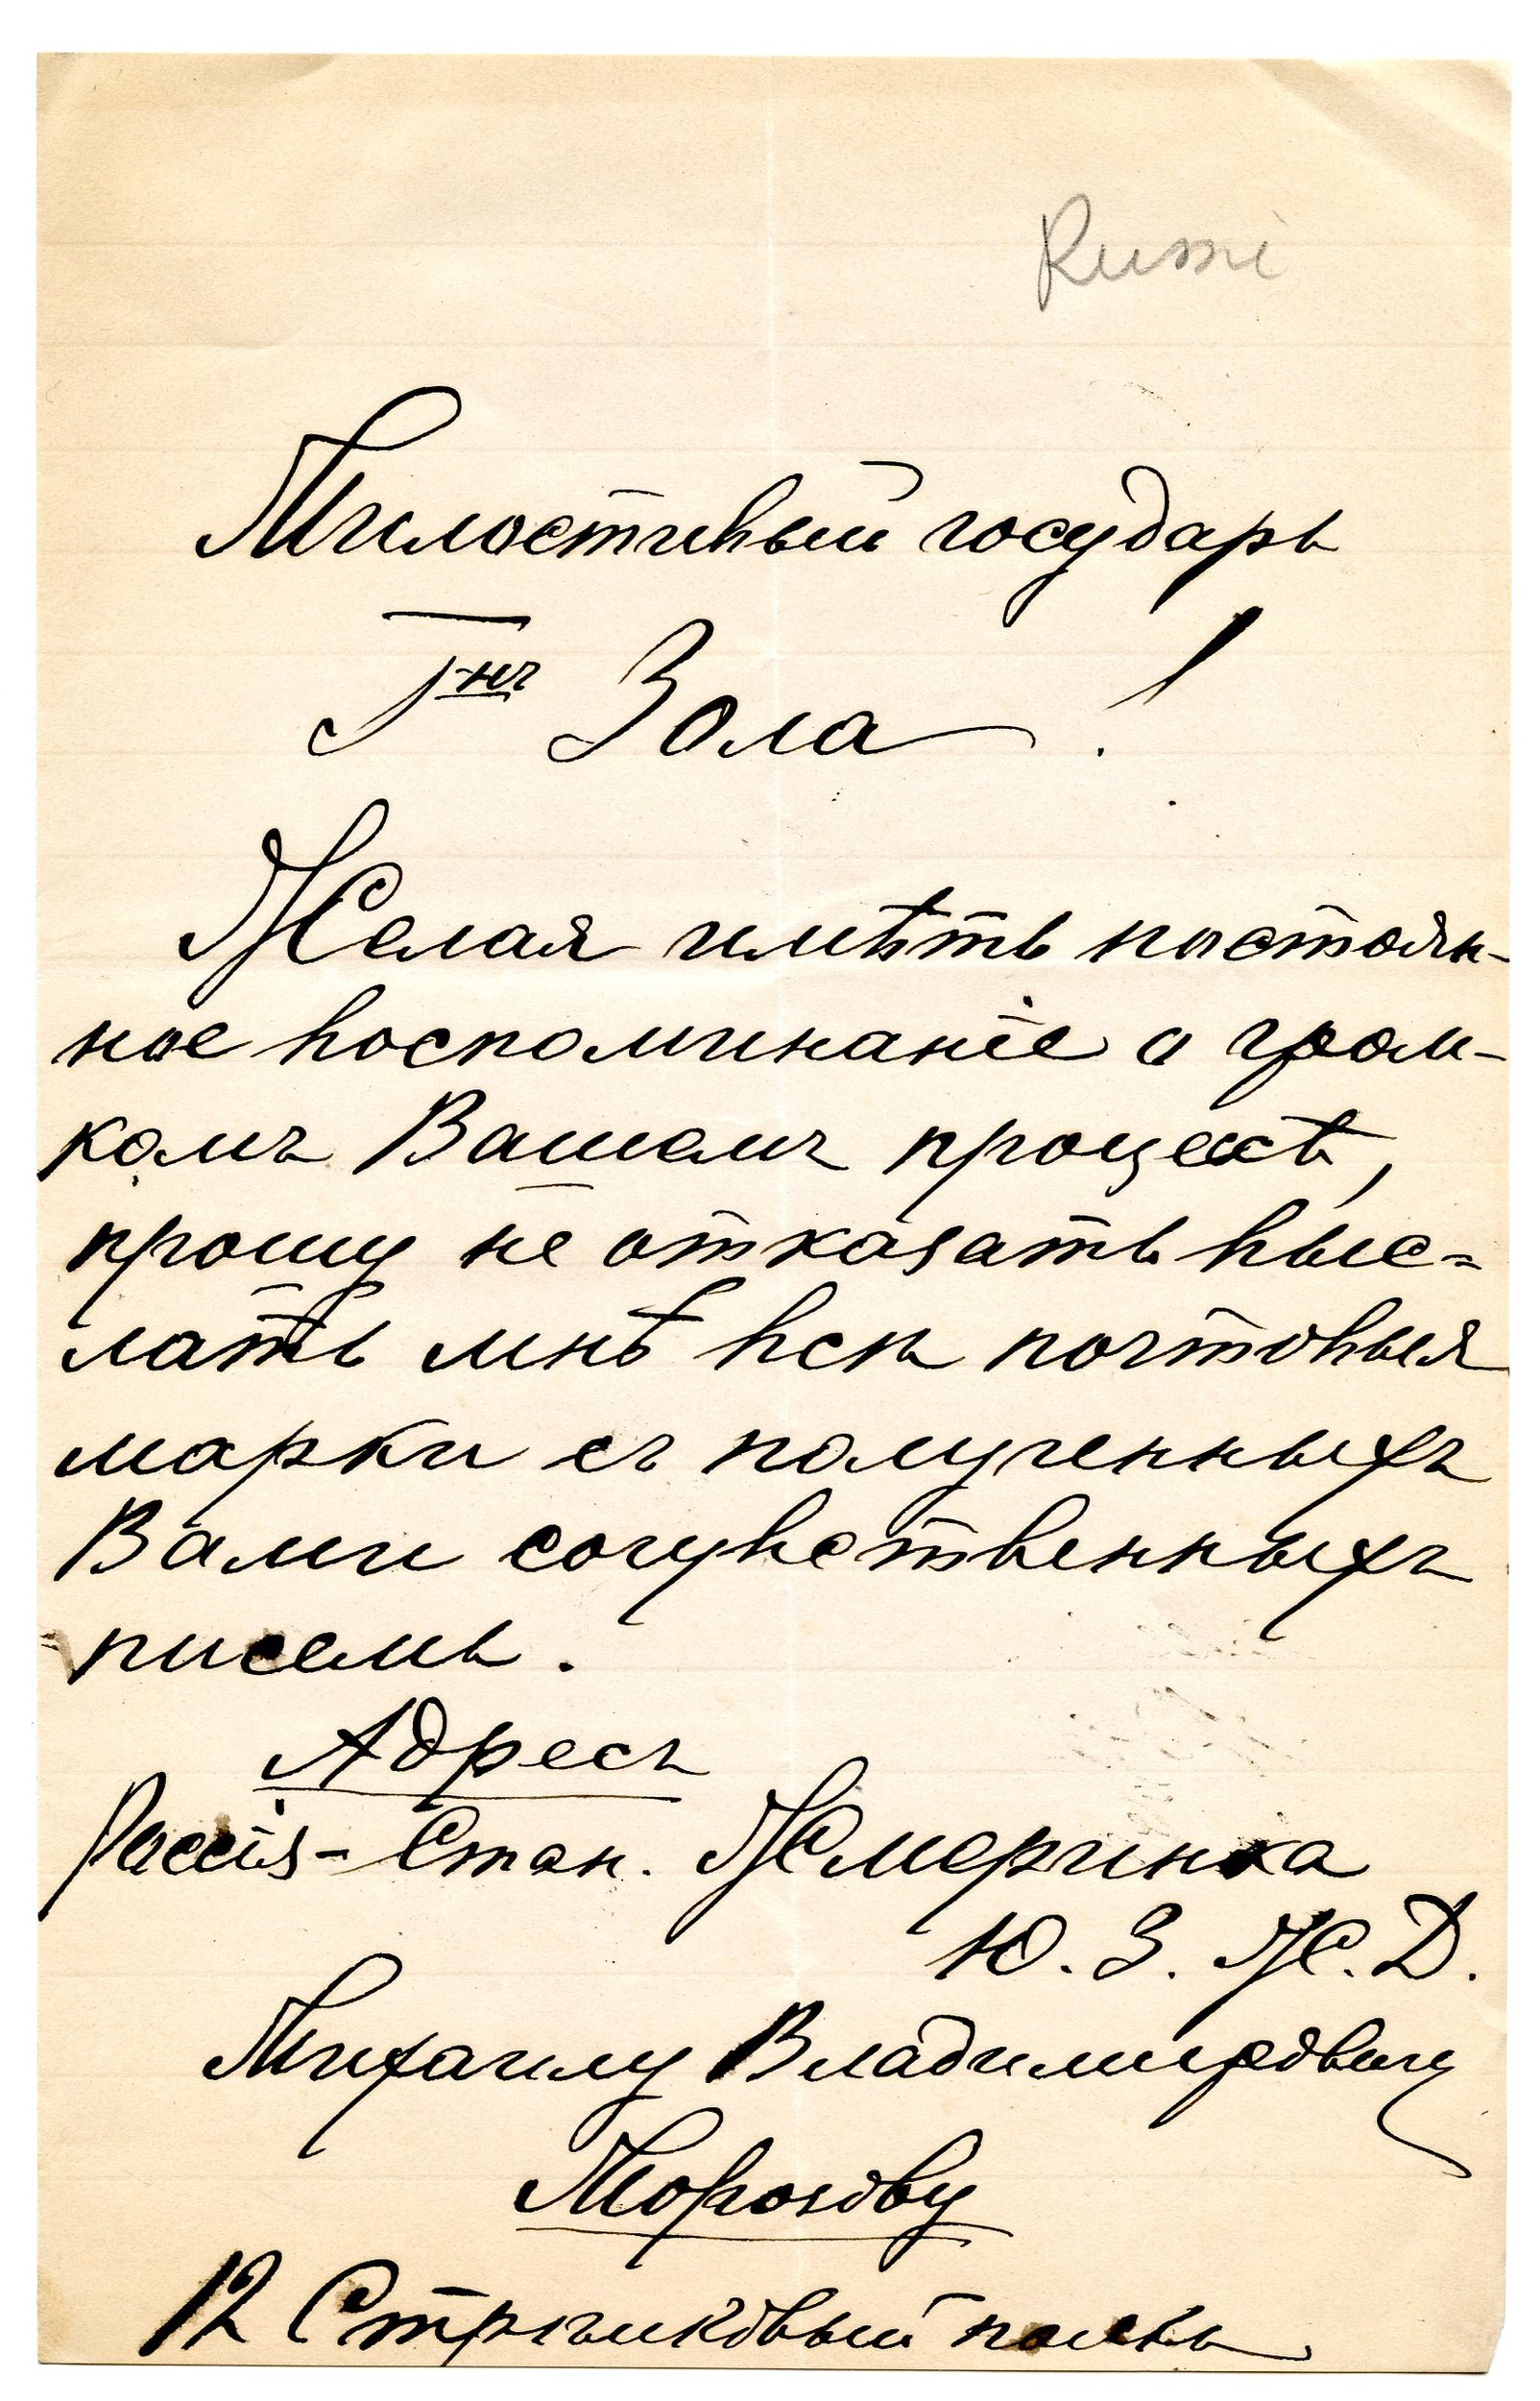 Russie
Милостивый государь
Г-нъ Зола!
Желая имѣть постоян-
ное воспоминаніе о гром-
комъ Вашемъ процессѣ,
прошу не отказать выс=
лать мнѣ всѣ почтовыя
марки съ полученныхъ
Вами сочувственныхъ
=писемь.
Адресъ
Россія - Стан. Жмеринка
Ю. З. Ж. Д.
Михаилу Владимировичу
Морозову
12 Стрѣлковый полкъ